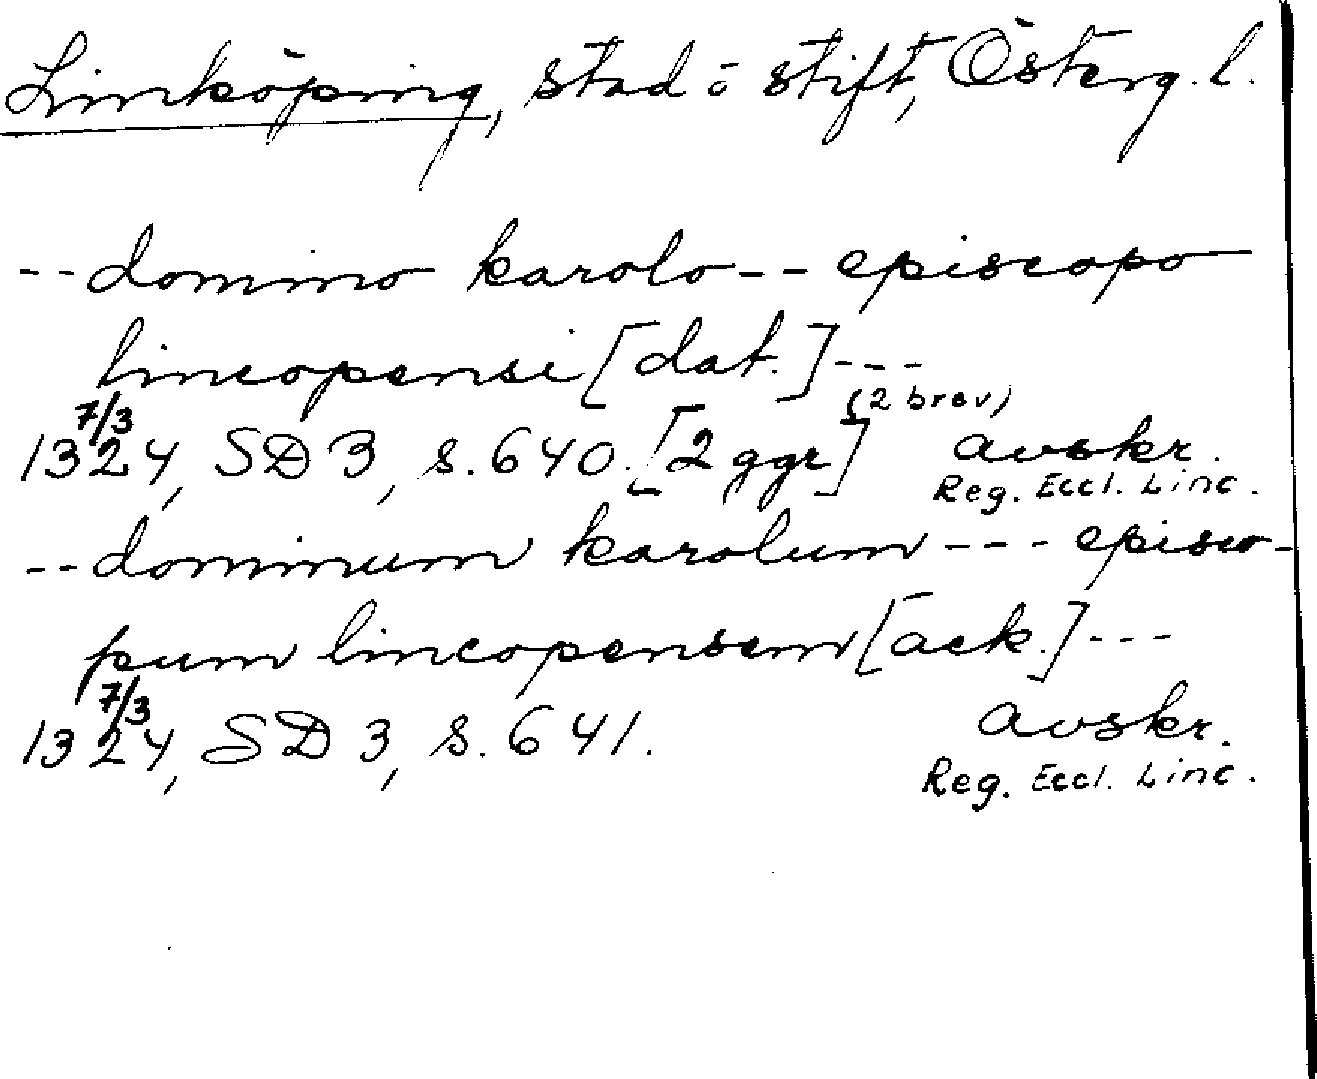 Linköping, stad o stift, Österg. l.
-- domino karolo -- episcopo
lincopensi [dat.] ---
(2 brev)
7/3
1324, SD 3, s. 640. [2 ggr] avskr.
Reg. Eccl. Linc.
-- dominum karolum --- episco-
pum lincopensem [ack.] ---
7/3
1324, SD 3, s. 641. avskr.
Reg. Eccl. Linc.